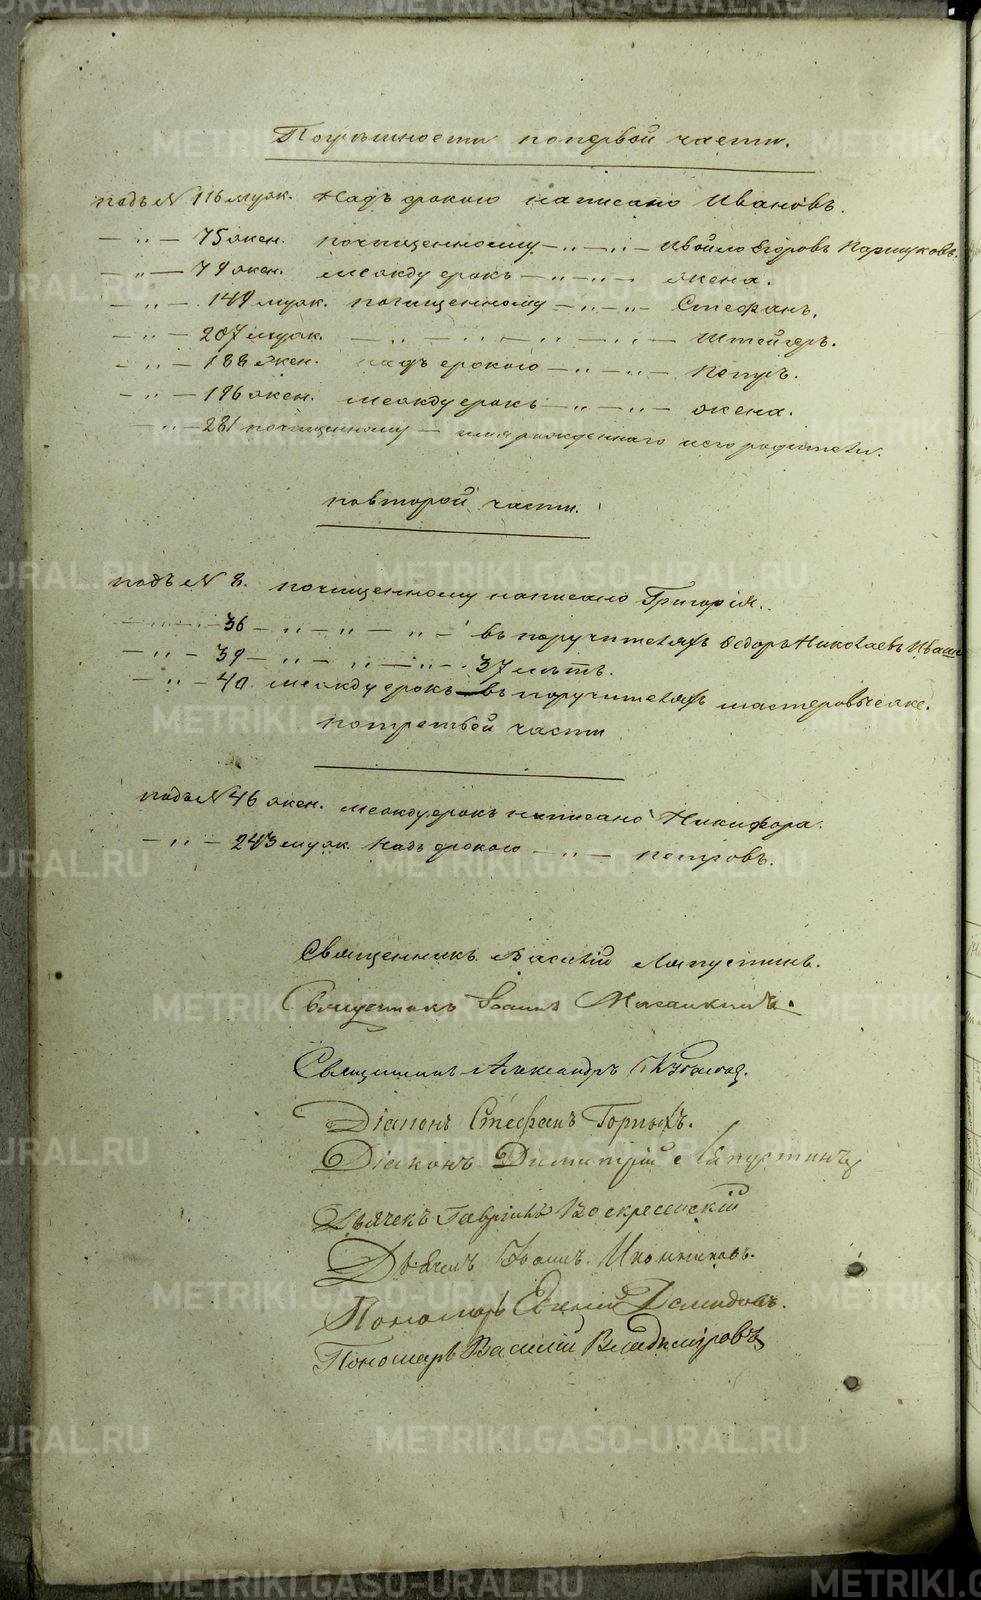 Погрѣшности по первой части.
подъ N 116 муж. надъ строкою написано Ивановъ.
— „ — 75 жен. почищенному — „ — „ — Егоровъ Паршуковъ.
— „ — 79 жен. между строкъ — „ — „ — жена.
— „ — 149 муж. почищенному — „ — „ — Стефанъ.
— „ — 207 муж. — „ — „ — „ — „ — Штейгеръ.
— „ — 188 жен. надъ строкою — „ — „ — Петръ.
— „ — 196 жен. между строкъ — „ — „ — жена.
— „ — 281 почищенному — имя рожденнаго и его родители.
по второй части.
подъ N 8. почищенному написано Григорія.
— „ — 36 — „ — „ — „ — въ поручителяхъ Федоръ Николаевъ
— „ — 39 — „ — „ — „ — 37 лѣтъ.
— „ — 40 между строкъ въ поручителяхъ мастеровые
по третьей части
подъ N 46 жен. между строкъ написано Никифора.
— „ — 243 муж. надъ строкою — „ — Петровъ.
Священникъ Василій Ляпустинъ.
Священникъ Іоаннъ
Священникъ Александръ
Діаконъ Стефанъ Горныхъ.
Діаконъ Димитрій Ляпустинъ
Дьячекъ Гавріилъ Воскресенскій
Дьячекъ Иванъ Иконниковъ.
Пономарь Евгеній Демидовъ.
Пономарь Василій Владиміровъ
METRIKI.GASO-URAL.RU